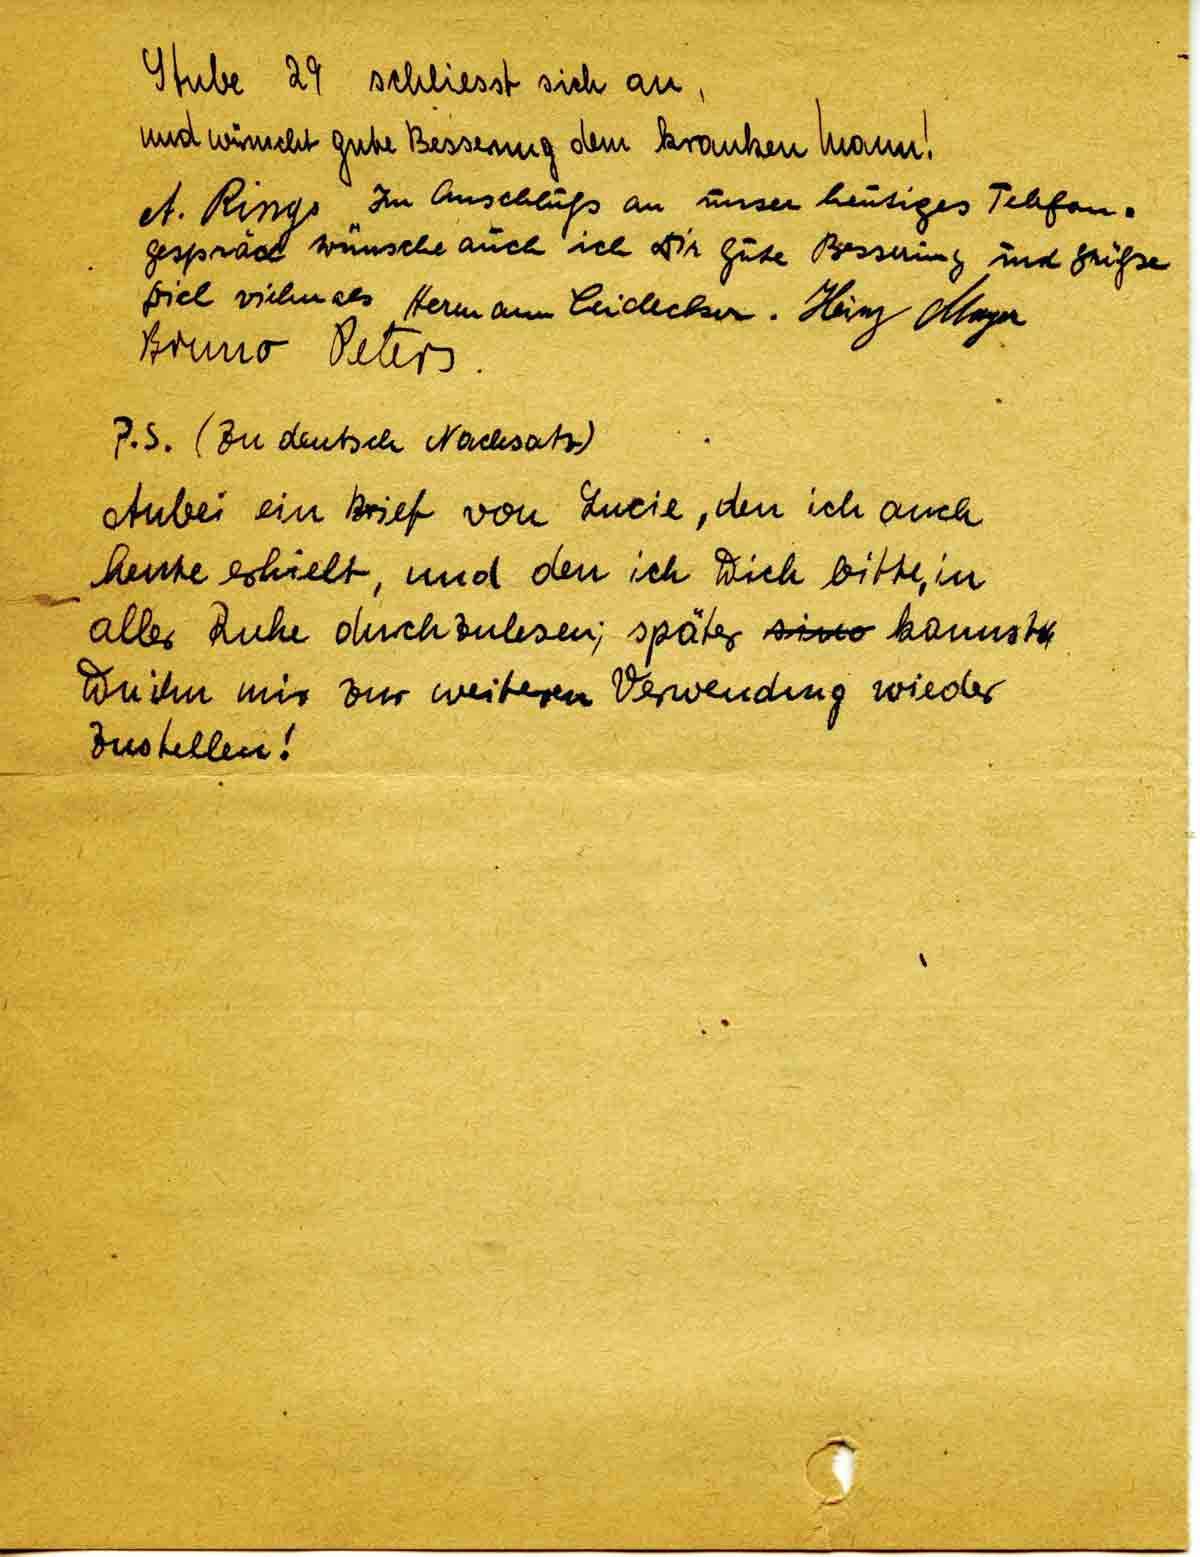 Stube 29 schliesst sich an,
und wünscht gute Besserung dem kranken Mann!
A. Rings Im Anschluß an unser heutiges Telefon-
gespräch wünsche auch ich Dir gute Besserung und grüße
Dich vielmals Hermann Leidecker. Heinz Mayer
Bruno Peters.
P.S. (Zu deutsch Nachsatz)
Anbei ein Brief von Lucie, den ich auch
heute erhielt, und den ich Dich bitte, in
aller Ruhe durchzulesen; später kannst
Du ihn mir zur weiteren Verwendung wieder
zustellen!